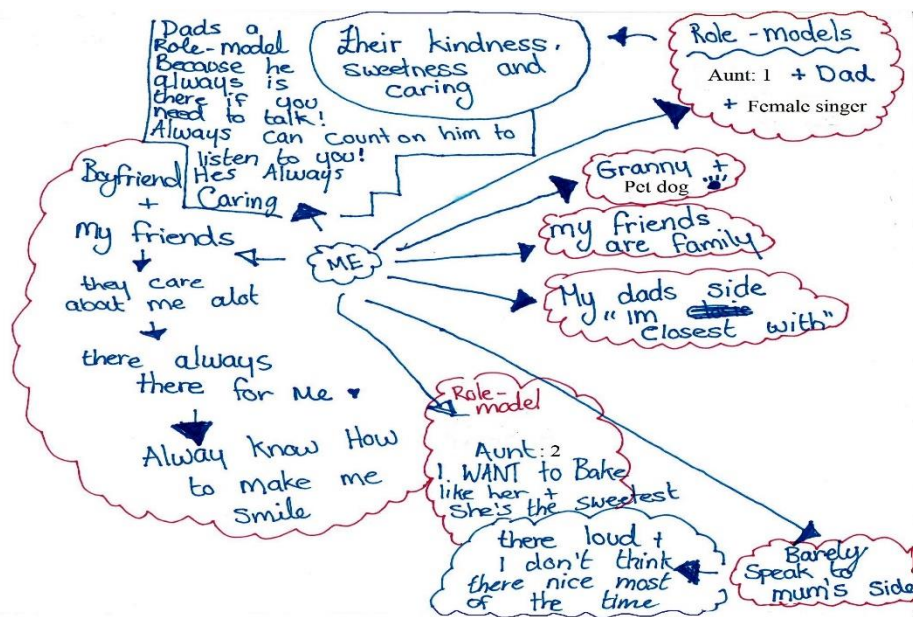 Dads a
Role-model
Because he
always is
there if you
need to talk!
Always can count on him to
listen to you!
Hes Always
Caring
Their kindness,
sweetness and
caring
Role-models
Aunt: 1 + Dad
+ Female singer
Granny +
Pet dog
my friends
are family
My dads side
"Im
closest with"
ME
Boyfriend
+
My friends
they care
about me alot
there always
there for me
Alway know How
to make me
smile
Role-
model
Aunt: 2
I WANT to Bake
like her +
She's the sweetest
there loud +
I don't think
there nice most
of the time
Barely
Speak to
mum's side